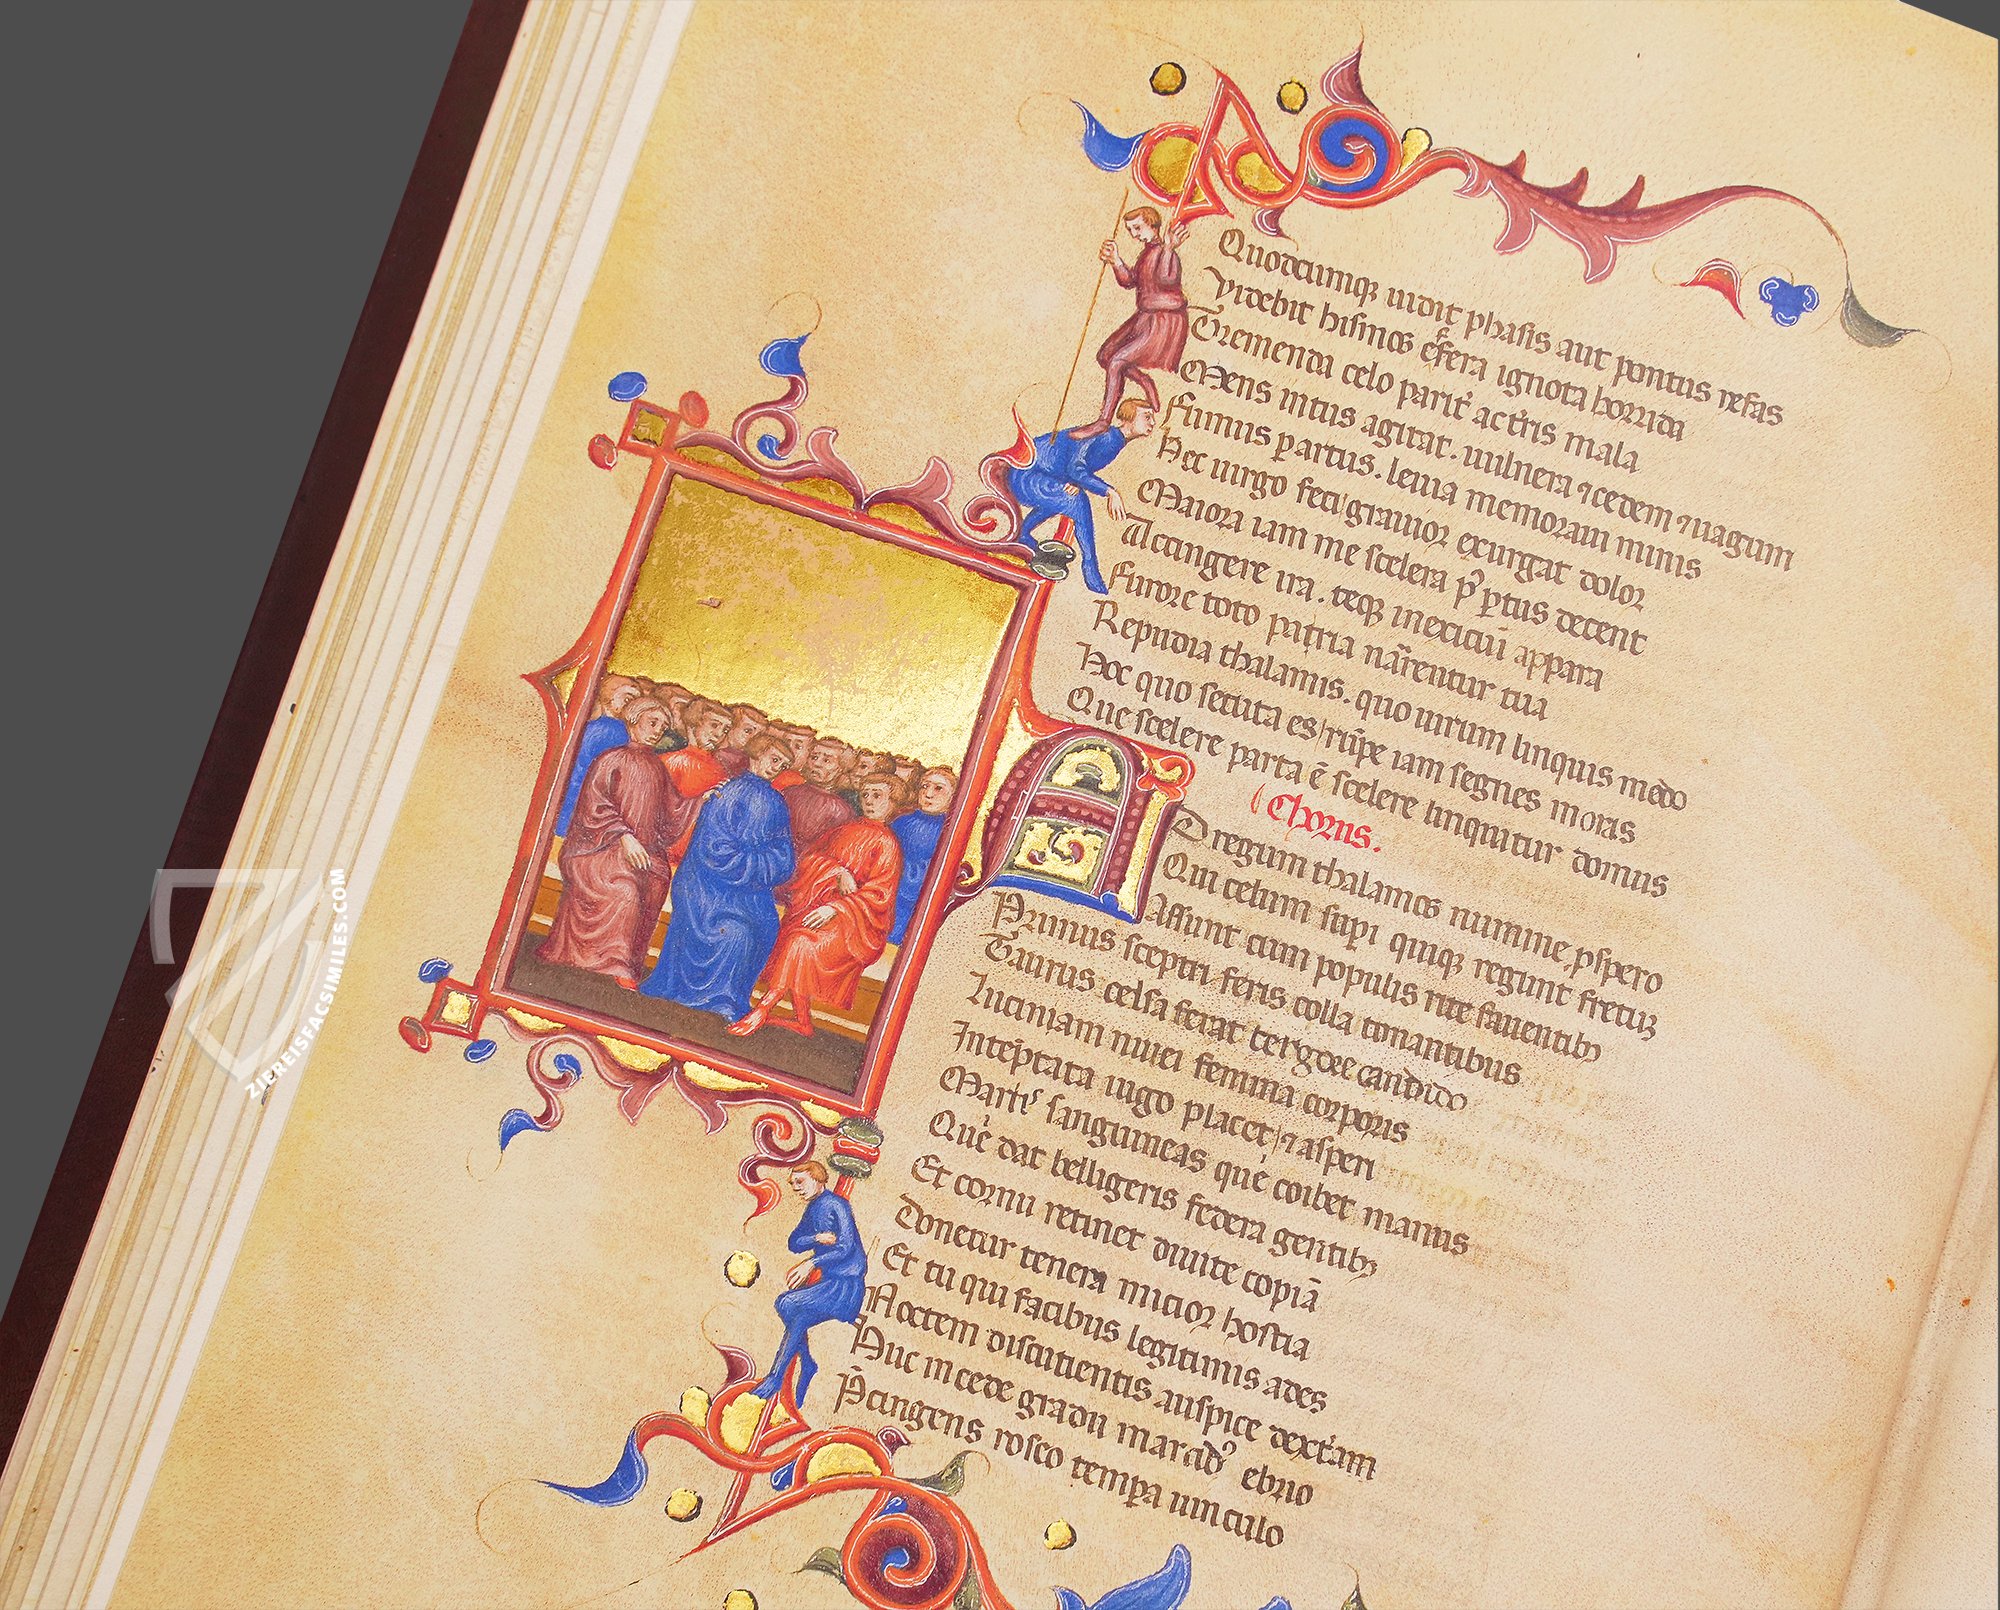 Quodcumq; uidit phasis aut pontus nefas
Videbit hismos effera ignota horrida
Tremenda celo parit' act'ris mala
Mens intus agitat. uulnera ⁊ cedem ⁊ uagum
Funus p artus. leuia memoraui nimis
Hec uirgo feci/ grauior exurgat dolor
Maiora iam me scelera p' ptus decent
Accingere ira. teq; inexiciū appara
Furore toto patria nārentur tua
Repudia thalamis. quo uirum linquis modo
Hoc quo secuta es/ rūpe iam segnes moras
Que scelere parta ē scelere linquitur domus
Chorus.
AD regum thalamos numine pspero
Qui celum supi quiq; regunt fretuȝ
Assunt cum populis rite fauentibȝ
Primus sceptri feris colla tonantibus
Taurus celsa ferat tergore candido
Luciniam niuei femina corporis
Inteptata iugo placet/ ⁊ asperi
Marti' sanguineas que coibet manus
Que dat belligeris federa gentibȝ
Et cornu retinet diuite copiā
Donetur tenera micior hostia
Et tu qui facibus legitimis ades
Noctem discutientis auspice dext'am
Huc incede gradu marcid' ebrio
Pcingens roseo tempa uinculo
ZIEREISFACSIMILES.COM